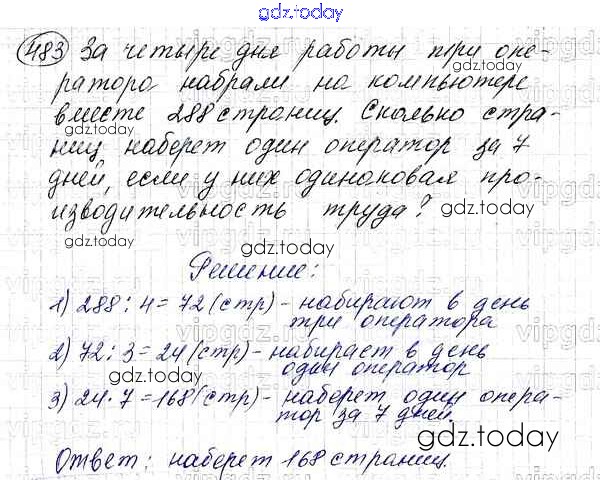 gdz.today
483 За четыре дня работы три опе-
gdz.today
ратора набрали на компьютере
вместе 288 страниц. Сколько стра-
gdz.today
gdz.today
ниц наберет один оператор за 7
дней, если у них одинаковая про-
изводительность труда?
gdz.today
gdz.today
gdz.today
Решение:
1) 288 : 4 = 72 (стр) - набирают в день
три оператора
2) 72 : 3 = 24 (стр) - набирает в день
один оператор
gdz.today
3) 24 · 7 = 168 (стр) - наберет один опера-
тор за 7 дней.
gdz.today
Ответ: наберет 168 страниц.